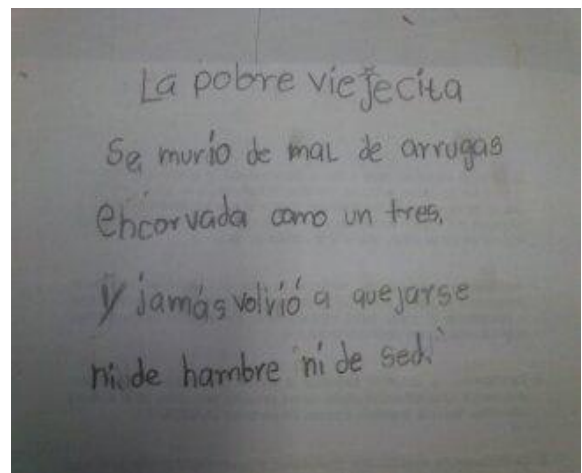 La pobre viejecita
Se murió de mal de arrugas
encorvada como un tres,
y jamás volvió a quejarse
ni de hambre ni de sed.